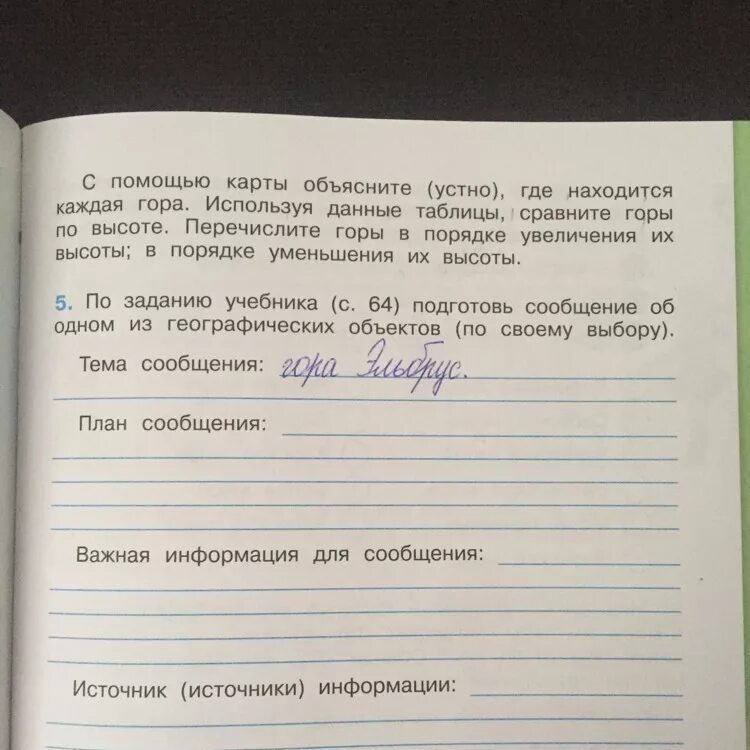 С помощью карты объясните (устно), где находится
каждая гора. Используя данные таблицы, сравните горы
по высоте. Перечислите горы в порядке увеличения их
высоты; в порядке уменьшения их высоты.
5. По заданию учебника (с. 64) подготовь сообщение об
одном из географических объектов (по своему выбору).
Тема сообщения: гора Эльбрус.
План сообщения:
Важная информация для сообщения:
Источник (источники) информации: